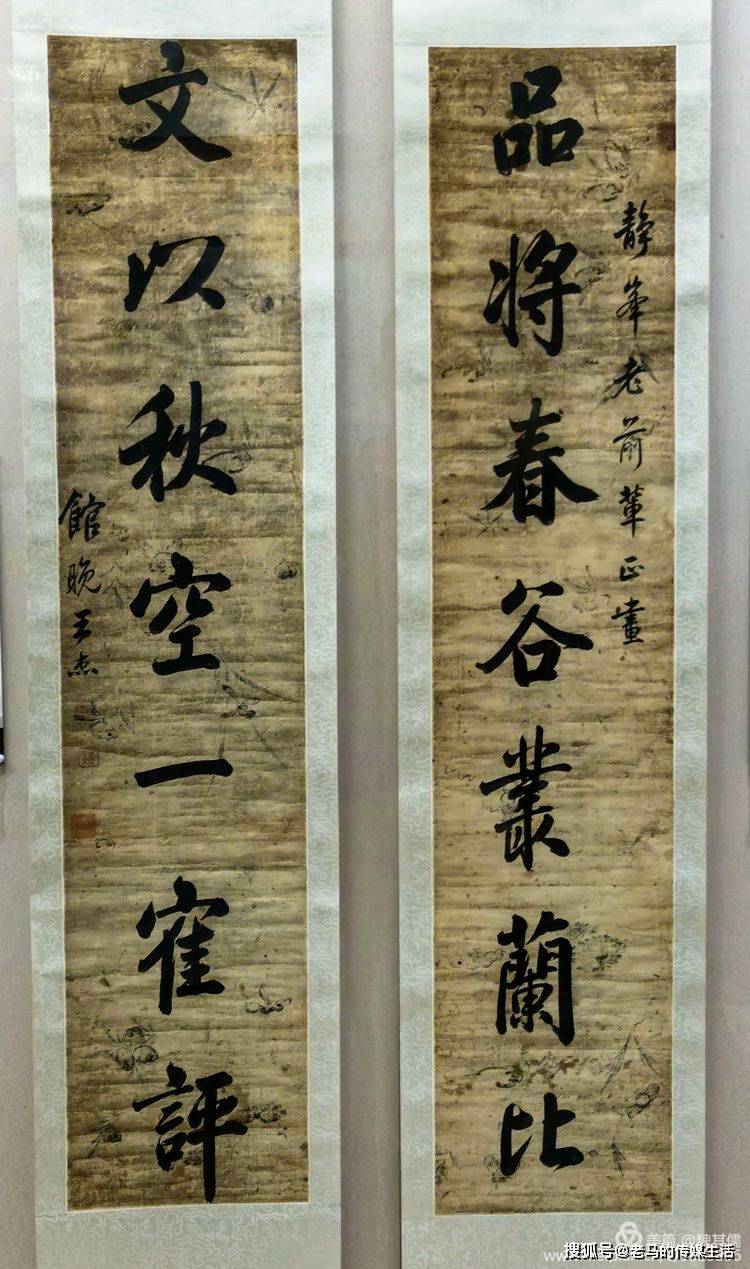 静峯老前輩正畫
品將春谷叢蘭比
文以秋空一隺評
館晚王杰
美篇 @魏其儒
搜狐号@老马的传媒生活